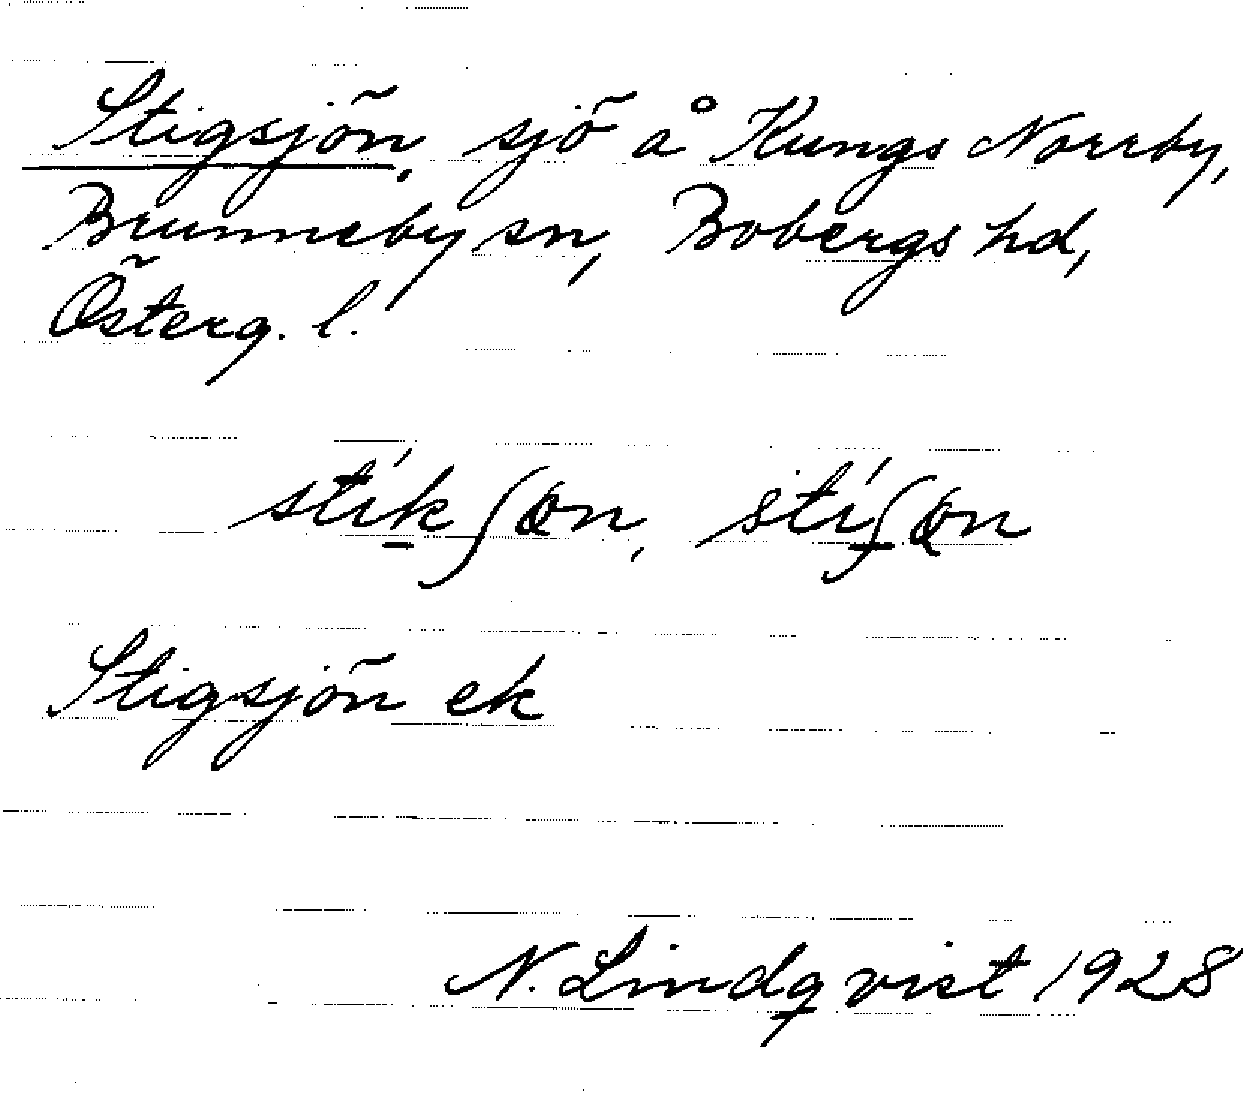 Stigsjön, sjö å Kungs Norrby,
Brunneby sn, Bobergs hd,
Österg. l.
stíkʃøn, stíʃøn
Stigsjön ek
N. Lindqvist 1928